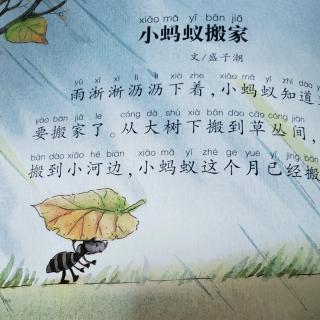 xiǎo mǎ yǐ bān jiā
小蚂蚁搬家
文/盛子潮
yǔ xī xī lì lì xià zhe xiǎo mǎ yǐ zhī dào
雨淅淅沥沥下着，小蚂蚁知道
yào bān jiā le cóng dà shù xià bān dào cǎo cóng jiān
要搬家了。从大树下搬到草丛间，
bān dào xiǎo hé biān xiǎo mǎ yǐ zhè ge yuè yǐ jīng bān
搬到小河边，小蚂蚁这个月已经搬